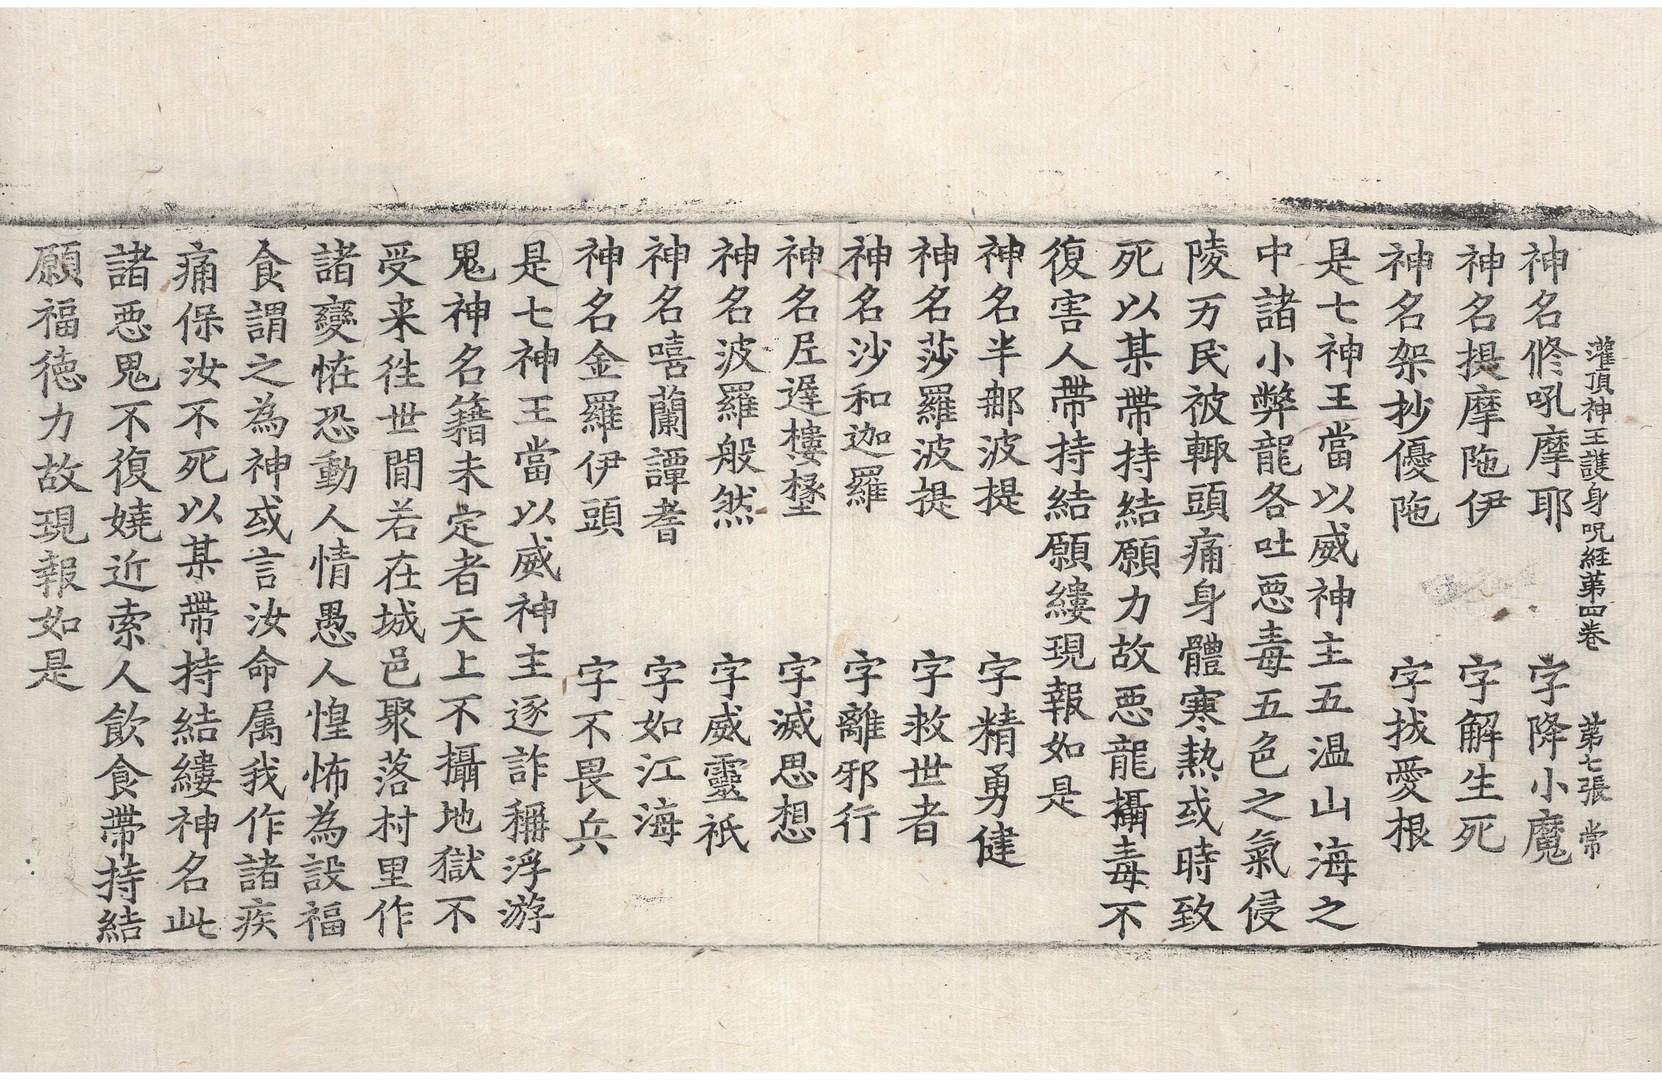 灌頂神王護身呪經第四卷　第七張　常
神名俢吼摩耶　字降小魔
神名提摩陁伊　字解生死
神名架抄優陁　字拔愛根
是七神王當以威神主五温山海之
中諸小弊龍各吐惡毒五色之氣侵
陵万民被輙頭痛身體寒熱或時致
死以某帶持結願力故惡龍攝毒不
復害人帶持結願縷現報如是
神名半那波提　字精勇健
神名莎羅波提　字救世者
神名沙和迦羅　字離邪行
神名𡰱遅樓　字滅思想
神名波羅般然　字威靈祇
神名嘻蘭譚耆　字如江海
神名金羅伊頭　字不畏兵
是七神王當以威神主逐詐稱浮游
鬼神名籍未定者天上不攝地獄不
受来徃世間若在城邑聚落村里作
諸變恠恐動人情愚人惶怖為設福
食謂之為神或言汝命属我作諸疾
痛保汝不死以某帶持結縷神名此
諸惡鬼不復嬈近索人飲食帶持結
願福徳力故現報如是